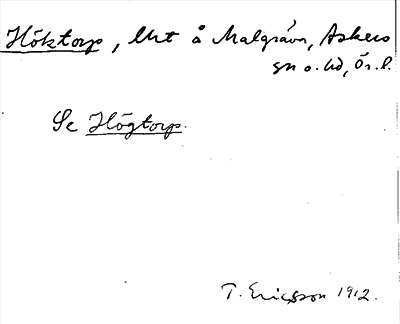 Höktorp, Urt å Malgräva, Askers
sn o. hd, Ör. l.
Se Högtorp.
T. Ericsson 1912.